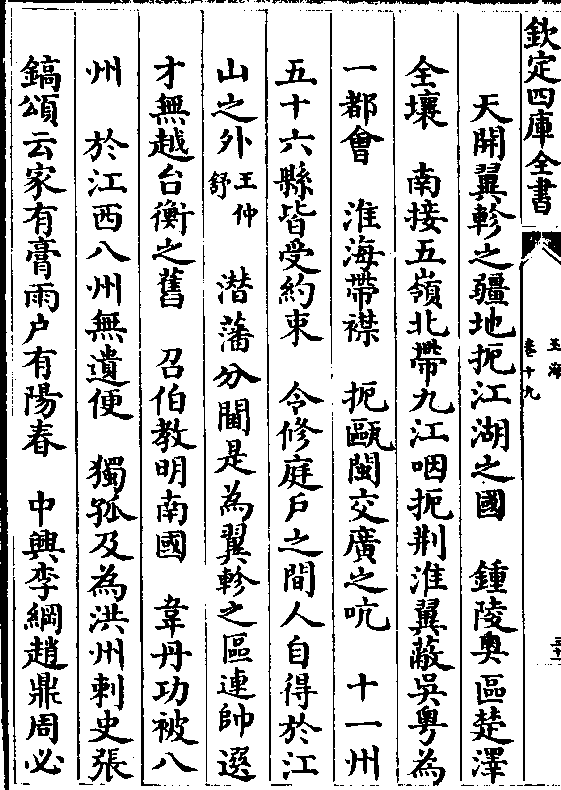 欽定四庫全書
玉海
卷十九
天開翼軫之疆地扼江湖之國　鍾陵奥區楚澤
全壤　南接五嶺北帶九江咽扼荆淮翼蔽吳粤為
一都會　淮海帶襟　扼甌閩交廣之吭　十一州
五十六縣皆受約束　令修庭户之間人自得於江
山之外王仲舒　潜藩分閫是為翼軫之區連帥選
才無越台衡之舊　召伯教明南國　韋丹功被八
州　於江西八州無遺便　獨孤及為洪州刺史張
鎬頌云家有膏雨户有陽春　中興李綱趙鼎周必